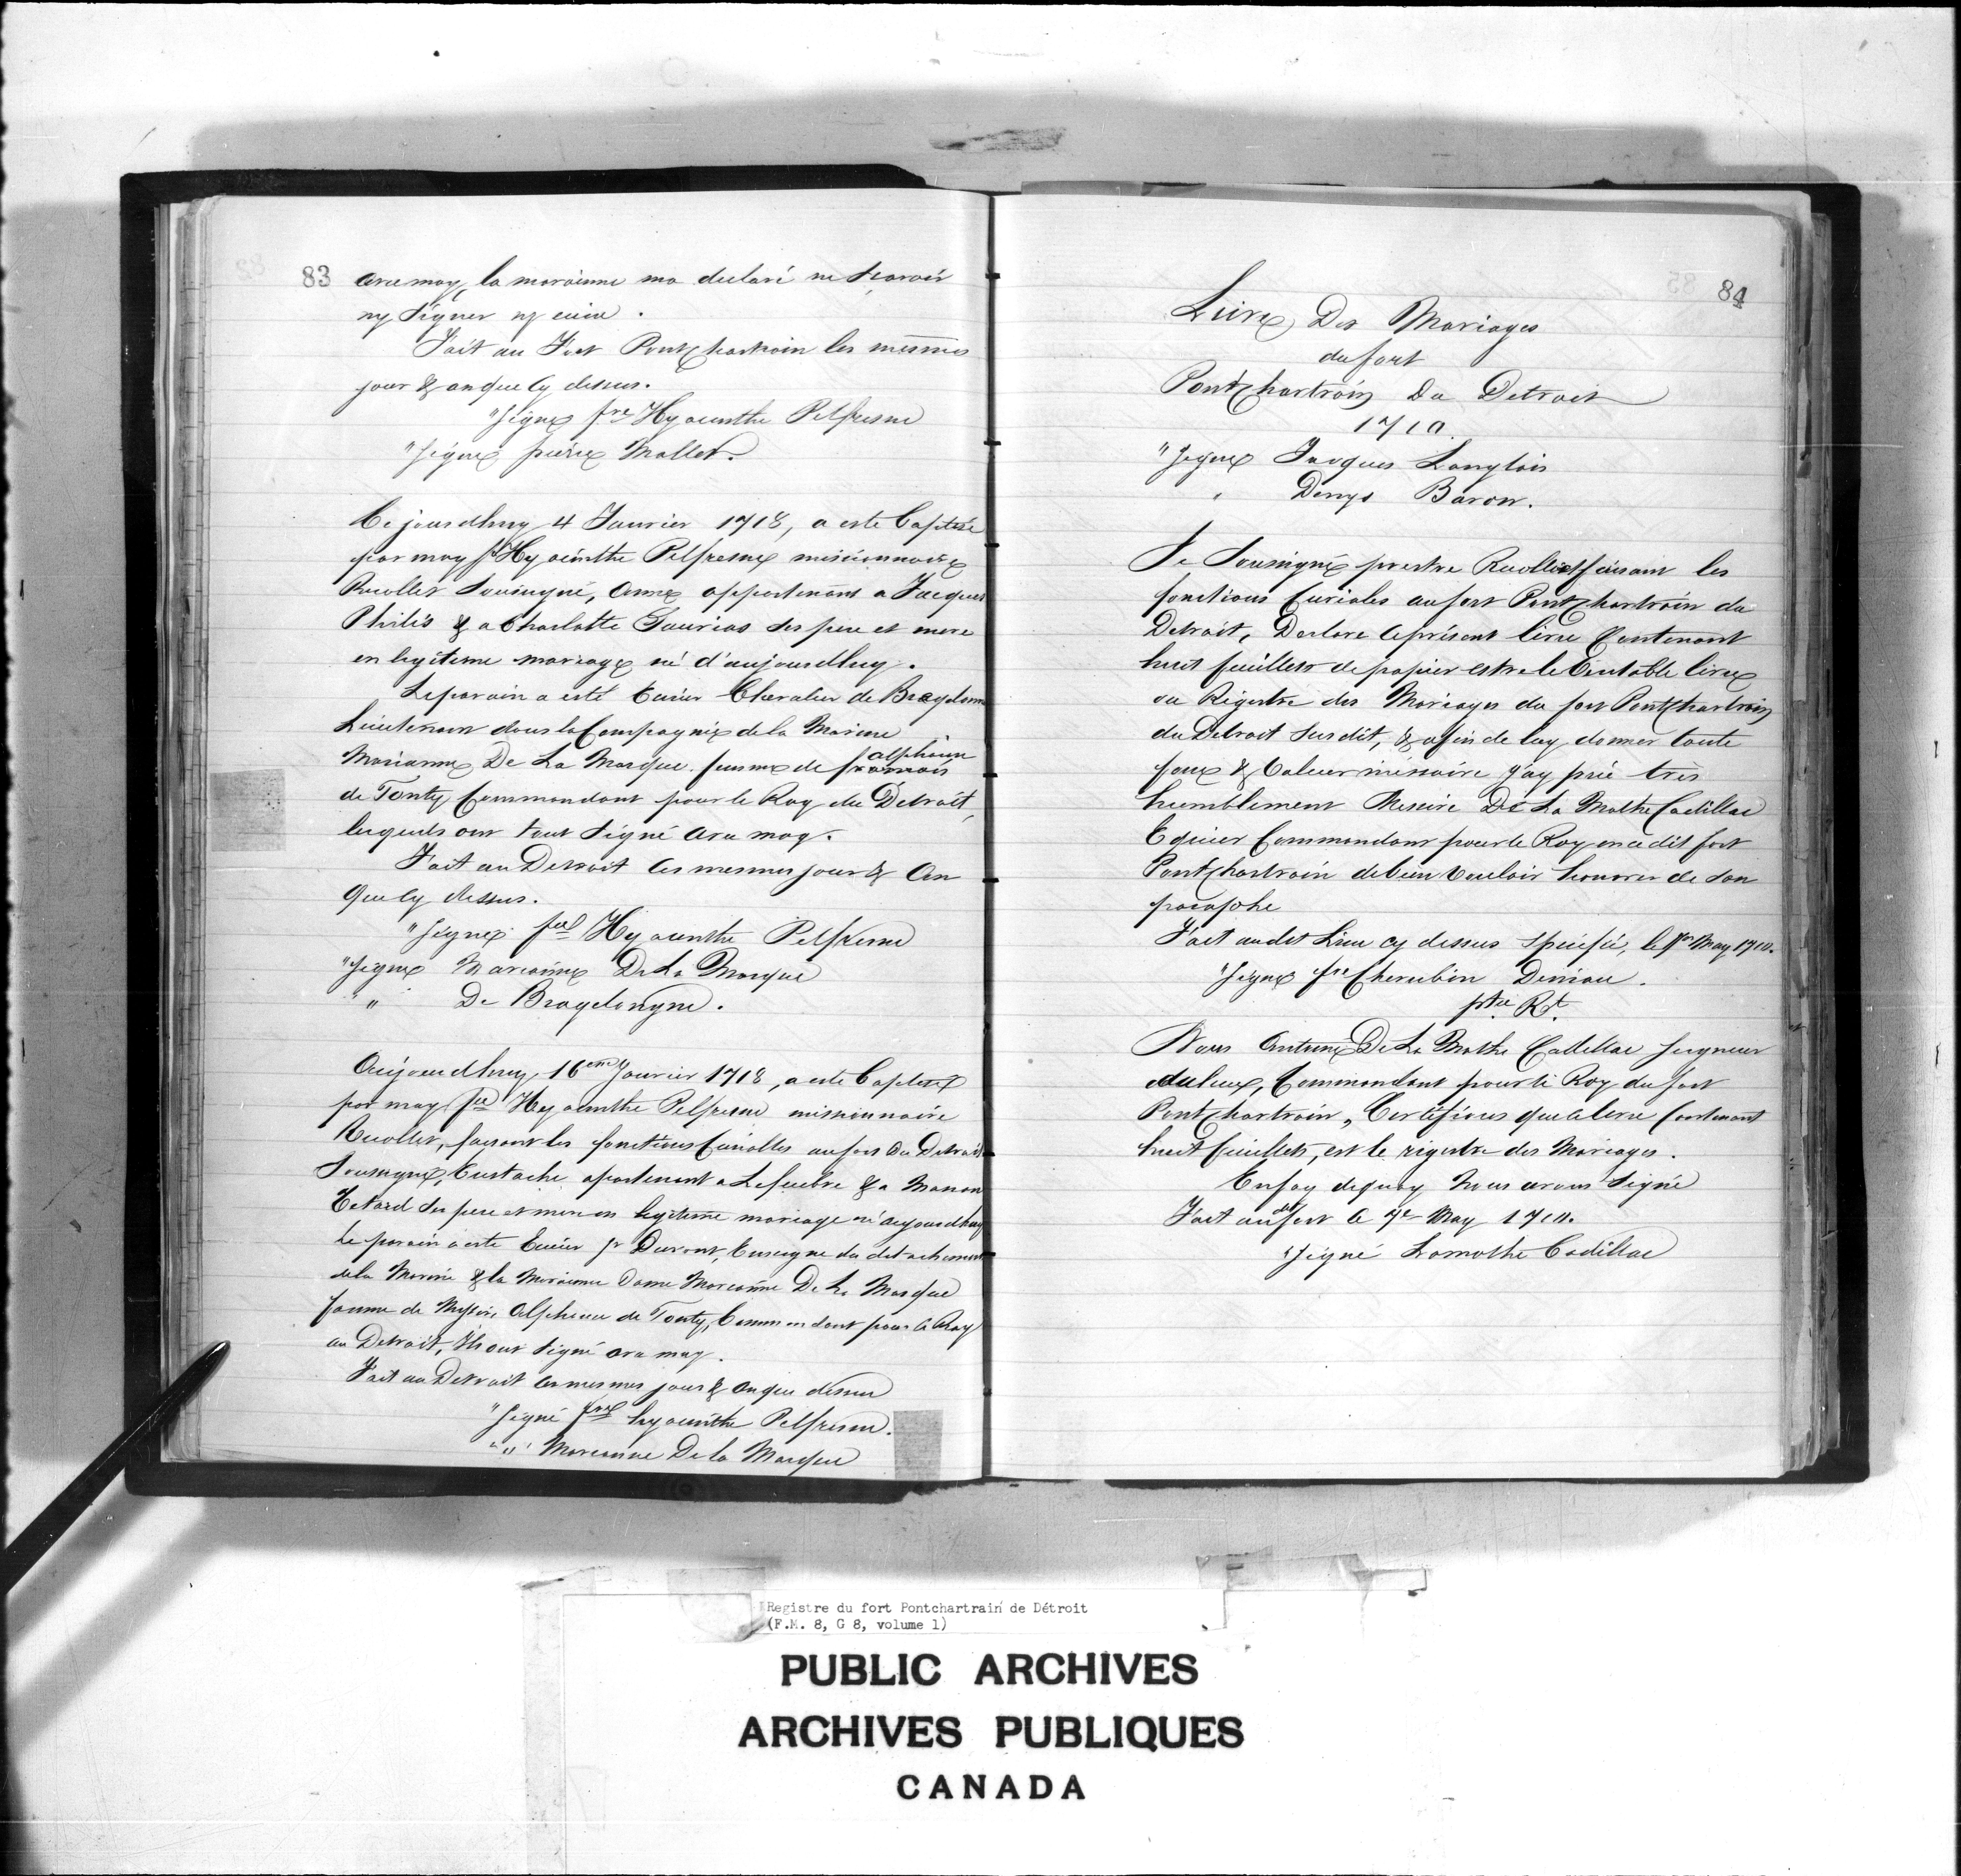 83
avec moy, la maraine ma declaré ne Scavoir
ny Signer ny
Fait au Fort Pontchartrain les mesmes
jour & an que Cy dessus.
"Signé fre Hyacinthe Pelfresne
"Signé pierre Mallet.
Ce jourdhuy 4 Janvier 1718, a esté baptisé
par moy fr Hyacinthe Pelfresne missionnaire
Recollet Sousigné, Anne appartenant a Jacques
Philis & a Charlotte Saurias ses pere et mere
en legitime mariage né d'aujourdhuy.
Le parain a esté Chevalier de Bragelonne
Lieutenant dans la Compagnie de la Marine
alphonse
Marianne De La Marque femme de francois
de Tonty Commandant pour le Roy du Detroit,
lesquels ont tout Signé avec moy.
Fait au Detroit les mesmes jour & An
que cy dessus.
"Signé frel Hyacinthe Pelfresne
"Signé Marianne De La Marque
" " De Bragelongne.
Aujourdhuy 16eme Janvier 1718, a esté baptisé
par moy fre Hyacinthe Pelfresne missionnaire
Recollet, faisant les fonctions Curialles au fort Du Detroit
Sousigné, Eustache apartenant a Lefeebre & a Manon
ses pere et mere en legitime mariage né aujourdhuy
Le parain a esté fr Durant, Enseigne du detachement
dela Marine & la Maraine Dame Marianne De La Marque
famme de Messire Alphonse de Tonty, Commendant pour le Roy
au Detroit, Ils ont Signé avec moy.
Fait au Detroit les mesmes jour & an que dessus
"Signé frel hyacinthe Pelfresne.
" " Marianne De la Marque
84
Livre Des Mariages
du fort
Pontchartrain Du Detroit
1710.
"Signé Jacques Langlois
" Denys Baron.
Je Sousigné prestre Recollect faisant les
fonctions Curiales au fort Pontchartrain du
Detroit, Declare le présent livre Contenant
huit feuillets de papier estre le Veritable livre
ou Régistre des Mariages du fort Pontchartrain
du Detroit Susdit, & afin de luy donner toute
force & Valeur nécessaire j'ay prié très
humblement Messire De La Mothe Cadillac
Ecuier Commandant pour le Roy en ce dit fort
Pontchartrain de bien Vouloir honorer de son
paraphe
Fait audt Lieu cy dessus spécifié, le 7e May 1710.
"Signé fre Cherubin Deniau.
ptre Rt.
Nous Antoine De La Mothe Cadillac Seigneur
des lieux, Commandant pour le Roy du fort
Pontchartrain, Certifions que ce livre Contenant
huit feuillets, est le régistre des Mariages.
En foy de quoy Nous avons Signé
Fait audt fort le 7e May 1710.
"Signé Lamothe Cadillac
Registre du fort Pontchartrain de Détroit
(F.M. 8, G 8, volume 1)
PUBLIC ARCHIVES
ARCHIVES PUBLIQUES
CANADA